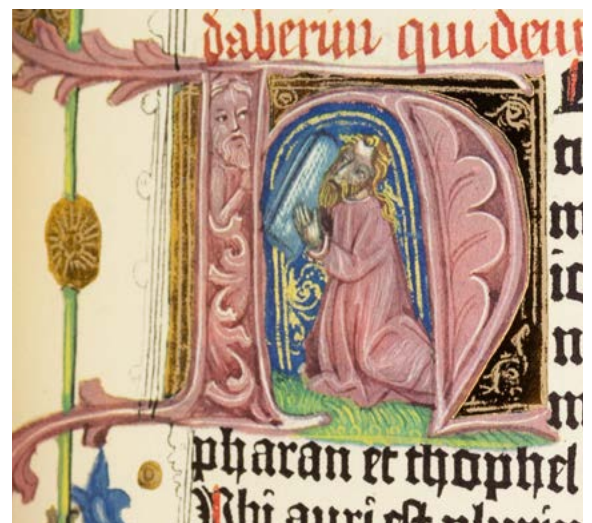 daberim qui deu
pharan et thophel
Ubi auri est plurim